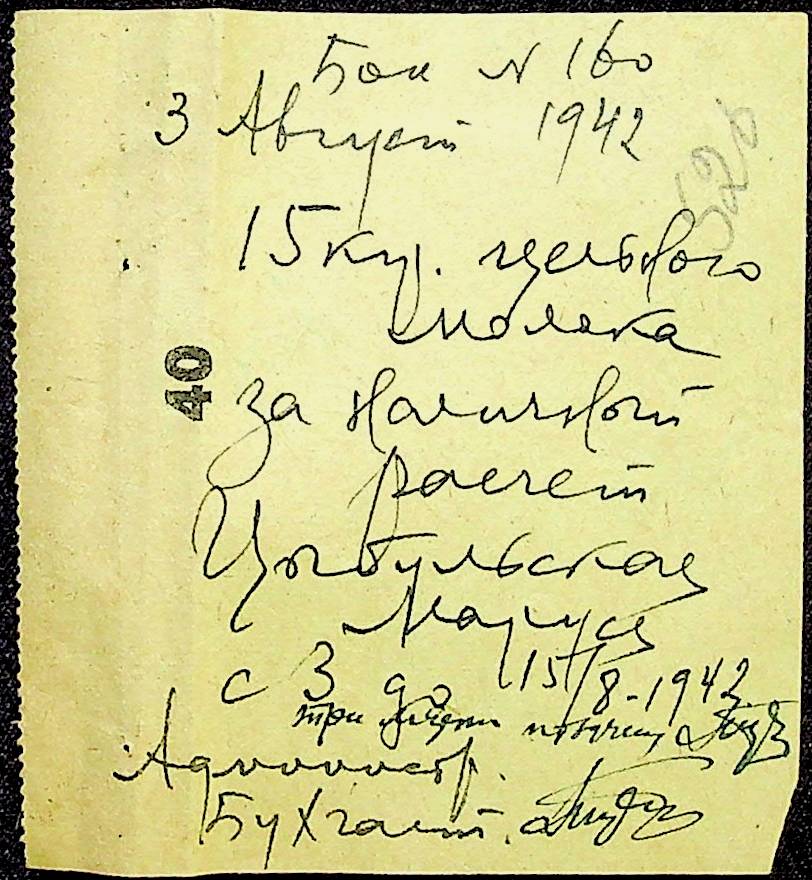 Бон № 160
3 Август 1942
15 куп. цельного
молока
за наличный
расчет
Цыбульская
Маруся
с 3 до 15/8-1942
три
Администр.
Бухгалт.
40
520